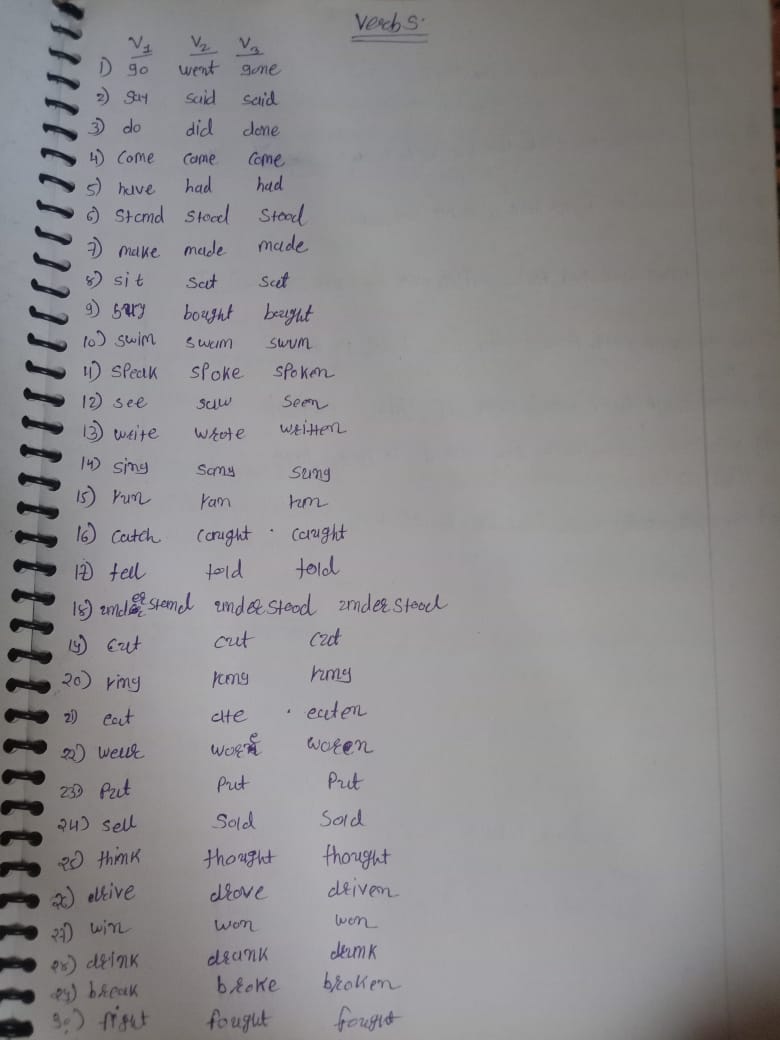 Verbs.
V1 V2 V3
1) go went gone
2) say said said
3) do did done
4) come came come
5) have had had
6) stand stood stood
7) make made made
8) sit sat sat
9) buy bought bought
10) swim swam swum
11) speak spoke spoken
12) see saw seen
13) write wrote written
14) sing sang sung
15) run ran run
16) catch caught caught
17) tell told told
18) understand understood understood
19) cut cut cut
20) ring rang rung
21) eat ate eaten
22) wear wore woren
23) put put put
24) sell sold sold
25) think thought thought
26) drive drove driven
27) win won won
28) drink drank drunk
29) break broke broken
30) fight fought fought